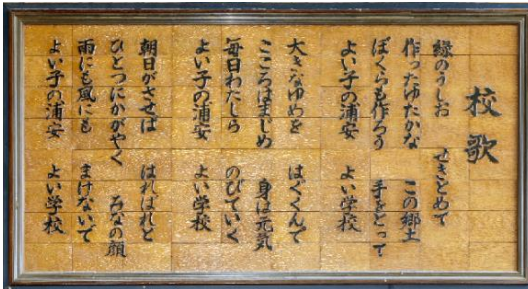 校歌
緑のうしお　せきとめて
作ったゆたかな　この郷土
ぼくらも作ろう　手をとって
よい子の浦安　よい学校
大きなゆめを　はぐくんで
こころはまじめ　身は元気
毎日わたしら　のびていく
よい子の浦安　よい学校
朝日がさせば　はればれと
ひとつにかがやく　みなの顔
雨にも風にも　まけないで
よい子の浦安　よい学校